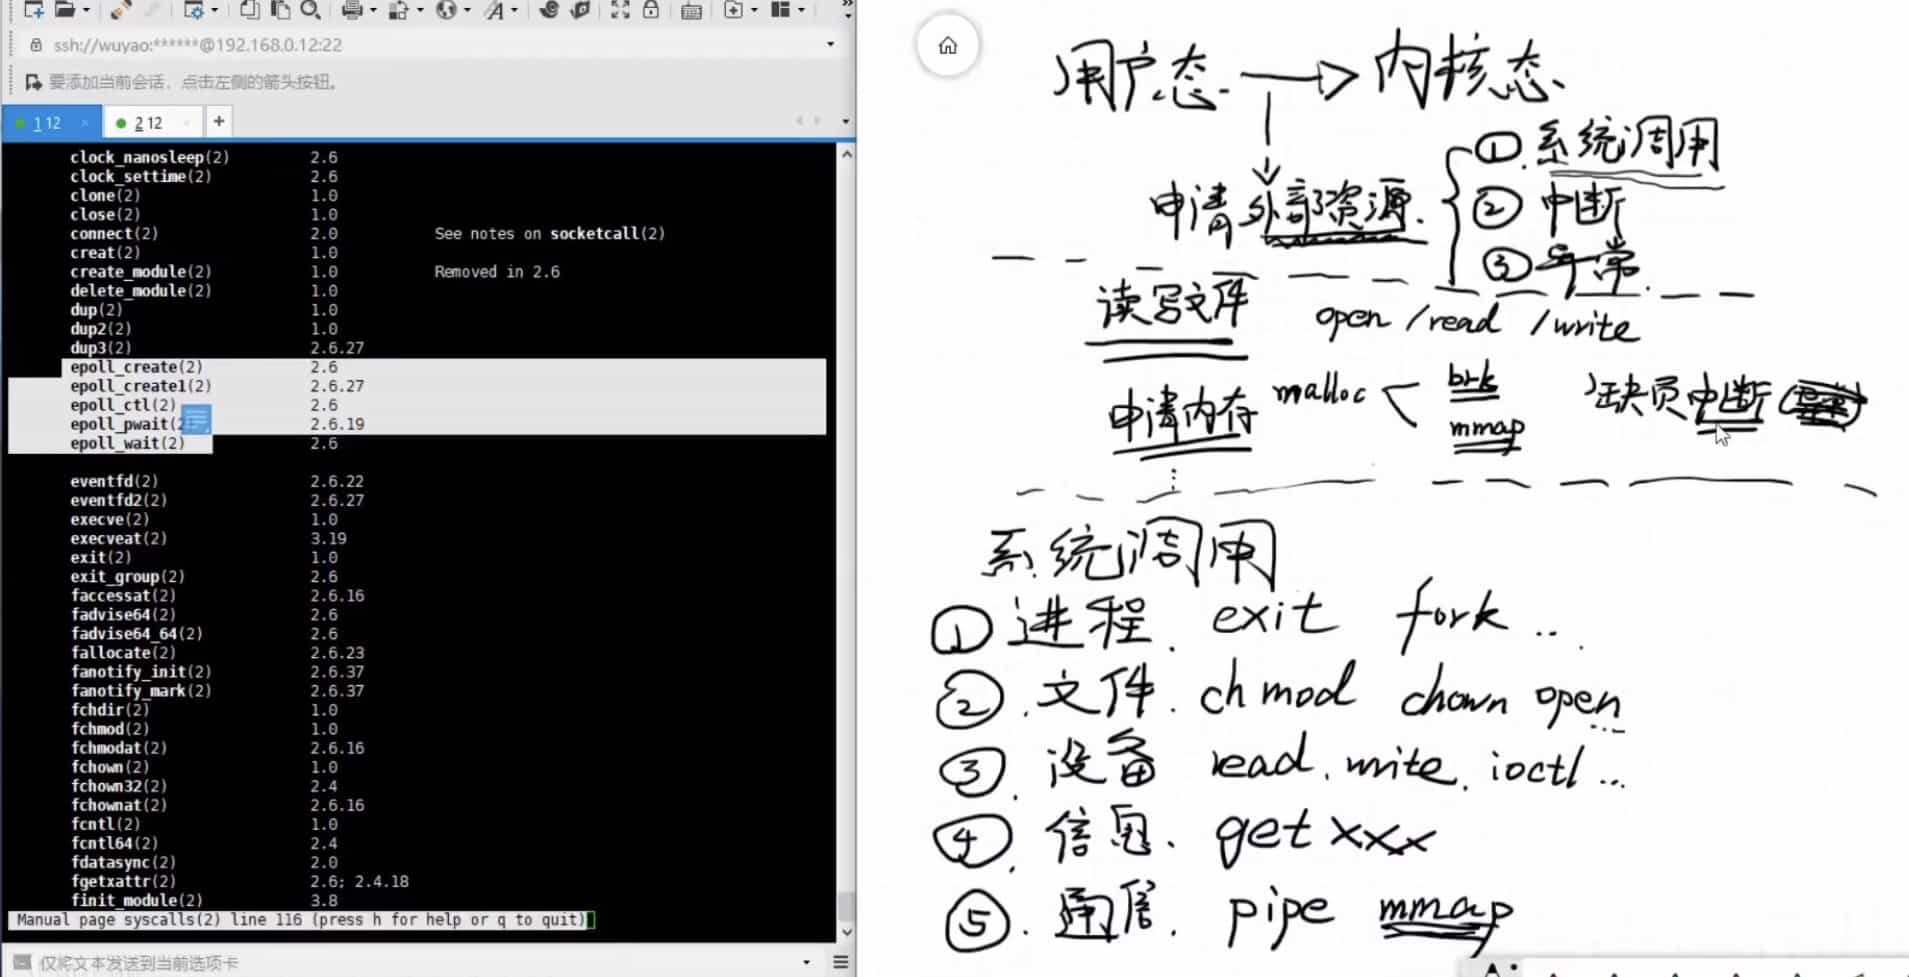 ssh://wuyao:******@192.168.0.12:22
要添加当前会话，点击左侧的箭头按钮。
1 12 ×
2 12
+
clock_nanosleep(2) 2.6
clock_settime(2) 2.6
clone(2) 1.0
close(2) 1.0
connect(2) 2.0 See notes on socketcall(2)
creat(2) 1.0
create_module(2) 1.0 Removed in 2.6
delete_module(2) 1.0
dup(2) 1.0
dup2(2) 1.0
dup3(2) 2.6.27
epoll_create(2) 2.6
epoll_create1(2) 2.6.27
epoll_ctl(2) 2.6
epoll_pwait(2 2.6.19
epoll_wait(2) 2.6
eventfd(2) 2.6.22
eventfd2(2) 2.6.27
execve(2) 1.0
execveat(2) 3.19
exit(2) 1.0
exit_group(2) 2.6
faccessat(2) 2.6.16
fadvise64(2) 2.6
fadvise64_64(2) 2.6
fallocate(2) 2.6.23
fanotify_init(2) 2.6.37
fanotify_mark(2) 2.6.37
fchdir(2) 1.0
fchmod(2) 1.0
fchmodat(2) 2.6.16
fchown(2) 1.0
fchown32(2) 2.4
fchownat(2) 2.6.16
fcntl(2) 1.0
fcntl64(2) 2.4
fdatasync(2) 2.0
fgetxattr(2) 2.6; 2.4.18
finit_module(2) 3.8
Manual page syscalls(2) line 116 (press h for help or q to quit)
仅将文本发送到当前选项卡
用户态. → 内核态.
① 系统调用
申请外部资源. ② 中断
③ 异常.
读写文件 open /read /write
申请内存 malloc brk 缺页中断
mmap
系统调用
① 进程. exit fork ...
② .文件. chmod chown open ...
③ . 设备 read. write. ioctl ...
④ . 信息. get xxx
⑤ . 通信. pipe mmap